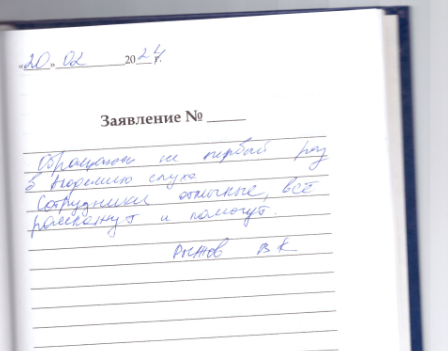 «20» 02 2024 г.
Заявление №
Обращаюсь не первый раз
в Академию слуха
Сотрудники отличные, всё
раскажут и помогут.
Рыжов В К